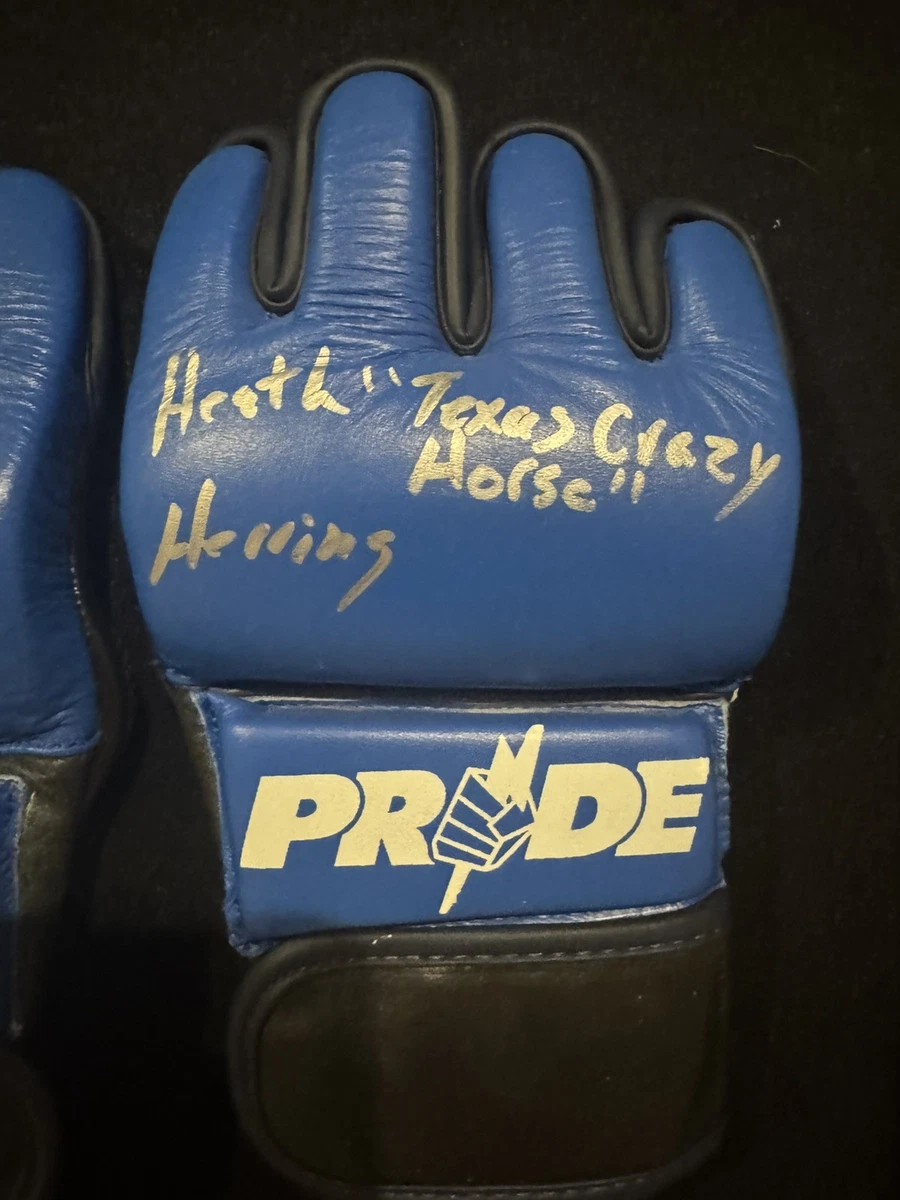 Heath "Texas Crazy
Horse"
Herring
PRIDE